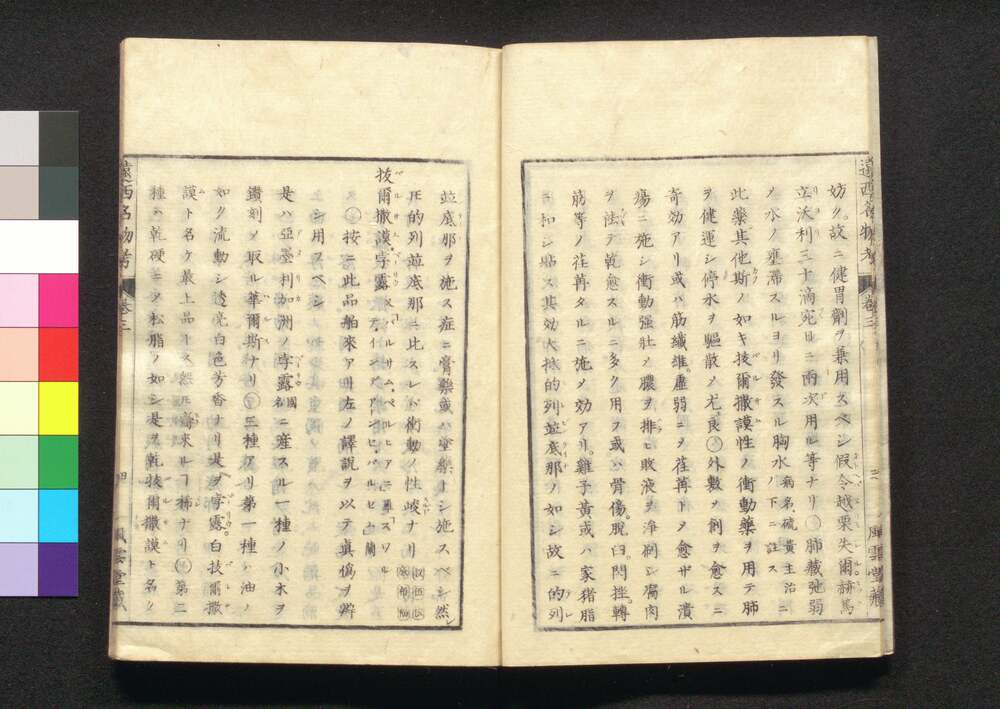 遠西名物考 巻三
妨ク故ニ健胃劑ヲ兼用スベシ假令越栗失爾
立沃利三十滴宛日ニ兩次用ル等ナリ 肺藏弛弱
ノ水ノ壅滞スルヨリ發スル胸水 病名硫黄主治ニ ノ下ニ註ス
此藥其他斯ノ如キ拔爾撒謨性ノ衝動藥ヲ用テ肺
ヲ健運シ停水ヲ驅散メ尤良 外敷メ創ヲ愈スニ
奇効アリ或ハ筋纖維虚弱ニメ荏苒トメ愈ザル潰
瘍ニ施シ衝動強壯メ膿ヲ排ヒ敗液ヲ淨刷シ瘍肉
ヲ法テ乾愈スルニ多ク用フ或ハ骨傷脱臼閃挫轉
筋等ノ荏苒タルニ施メ効アリ雞子黄或ハ家猪脂
ニ和シ貼ス其効大抵的列並底那ノ如シ故ニ的列
並底那ヲ施ス症ニ膏藥或ハ塗藥トシ施スベシ然
𪜈的列並底那ニ比スレバ衝動ノ性峻ナリ
拔爾撒謨孛露
按ニ此品舶來アリ左ノ譯説ヲ以テ眞僞ヲ辨
シ用スベシ
是ハ亞墨利加洲ノ孛露 國名 ニ産スル一種ノ小木ヲ
鑽刻メ取ル華爾斯ナリ 三種アリ第一種ハ油ノ
如ク流動シ透亮白色芳香ナリ是ヲ孛露白拔爾撒
謨ト名ク最上品トス然𪜈齎來ル丁稀ナリ 第二
種ハ乾硬ニメ松脂ノ如シ是ヲ乾拔爾撒謨ト名ク
遠西名物考 巻三 四 風雲堂藏